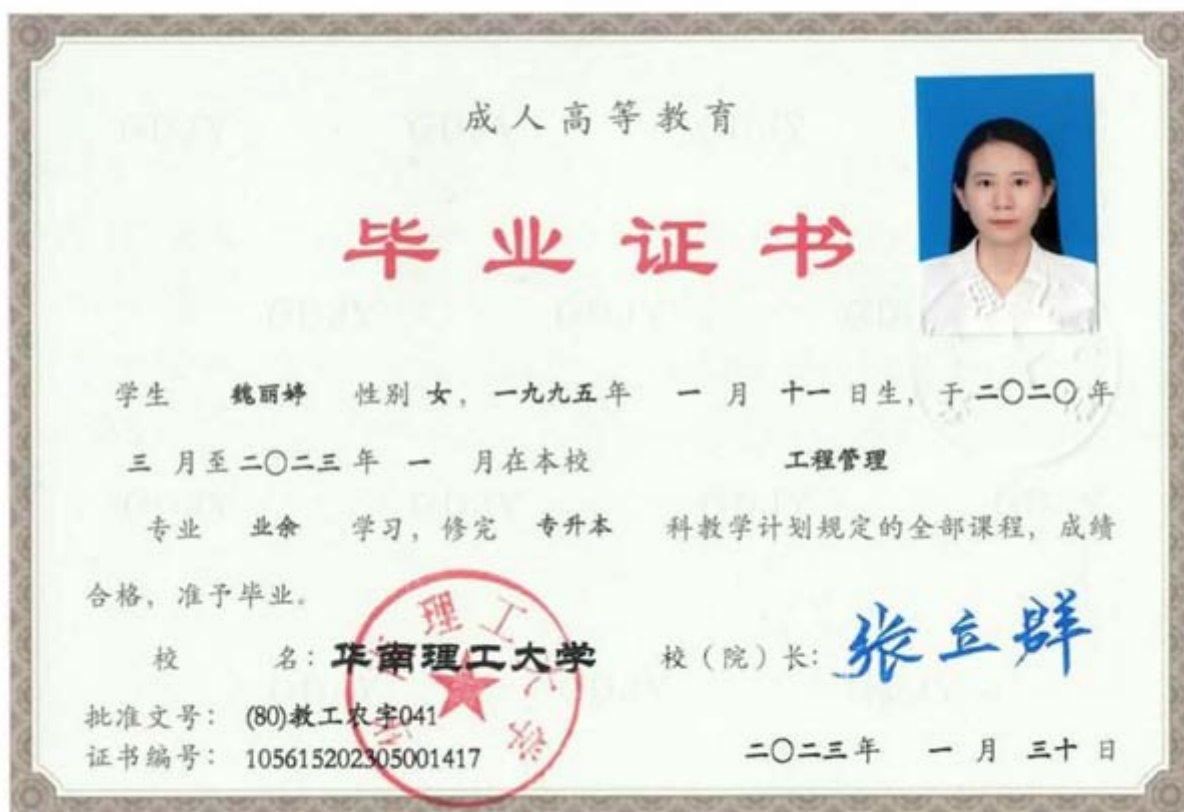 成人高等教育
毕业证书
学生 魏丽婷 性别 女，一九九五年 一 月 十一 日生，于二〇二〇年
三 月至二〇二三年 一 月在本校 工程管理
专业 业余 学习，修完 专升本 科教学计划规定的全部课程，成绩
合格，准予毕业。
校 名：华南理工大学 校（院）长：张立群
批准文号： (80)教工农字041
证书编号： 105615202305001417 二〇二三年 一 月 三十 日